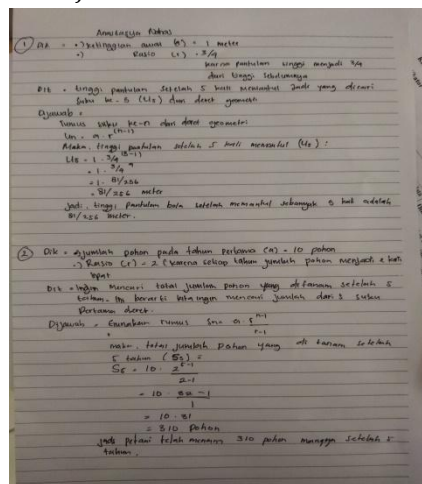 ① Dik = •) Ketinggian awal (a) = 1 meter
•) Rasio (r) = 3/4
karna pantulan tinggi menjadi 3/4
dari tinggi sebelumnya
Dit = tinggi pantulan setelah 5 kali memantul jadi yang dicari
suku ke-5 (U5) dari deret geometri
Dijawab =
rumus suku ke-n dari deret geometri
Un = a · r^(n-1)
Maka, tinggi pantulan setelah 5 kali memantul (U5) :
U5 = 1 · 3/4^(5-1)
= 1 · 3/4^4
= 1 · 81/256
= 81/256 meter
Jadi, tinggi pantulan bola setelah memantul sebanyak 5 kali adalah
81/256 meter.
② Dik = •) Jumlah pohon pada tahun pertama (a) = 10 pohon
•) Rasio (r) = 2 (karena setiap tahun jumlah pohon menjadi 2 kali
lipat
Dit = Ingin mencari total jumlah pohon yang ditanam setelah 5
tahun. Ini berarti kita ingin mencari jumlah dari 5 suku
pertama deret.
Dijawab = Gunakan rumus Sn = a · r^n-1
r-1
maka, total jumlah pohon yang di tanam setelah
5 tahun (S5) =
S5 = 10 · 2^5-1
2-1
= 10 · 32 - 1
1
= 10 · 31
= 310 pohon
Jadi petani telah menanam 310 pohon mangga setelah 5
tahun.